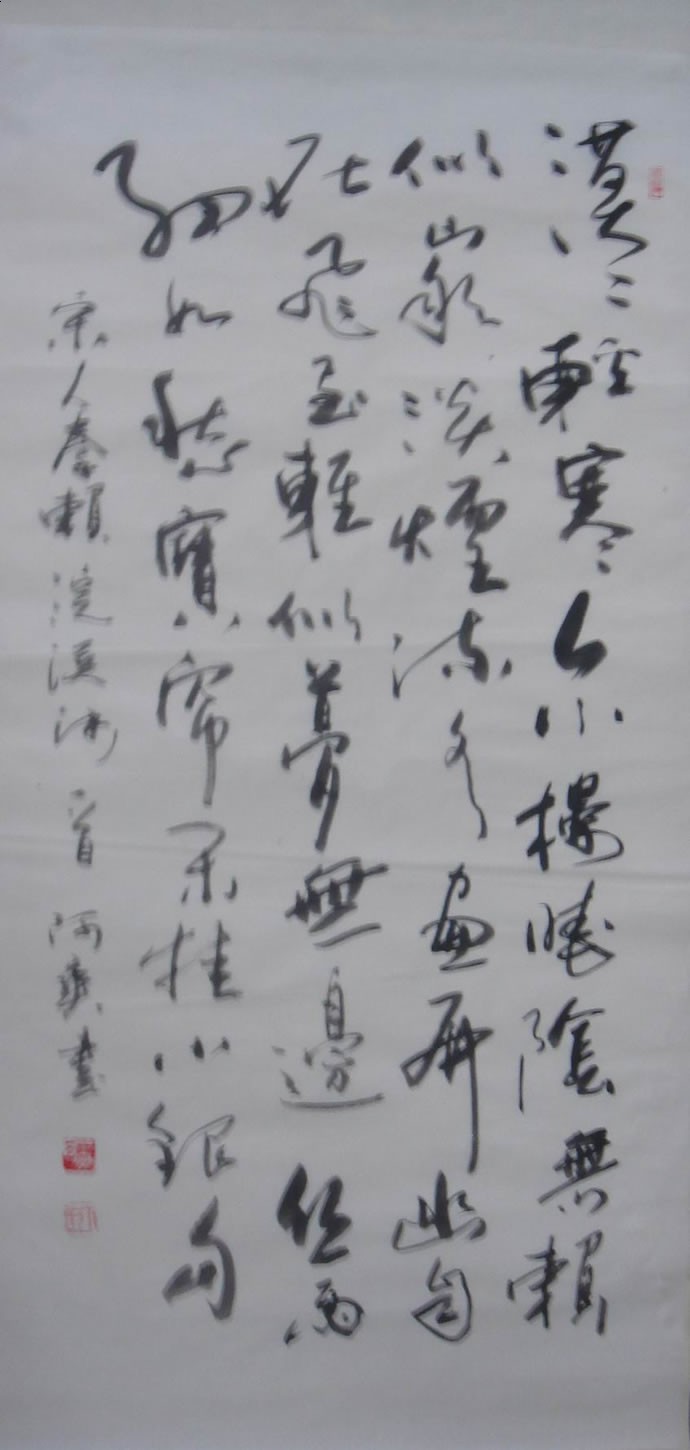 漠二輕寒上小樓曉陰無賴
似窮秋淡煙流水畫屏幽自
在飛花輕似夢無邊絲雨
細如愁寶帘閑挂小銀
宋人秦浣溪沙一首 阿書